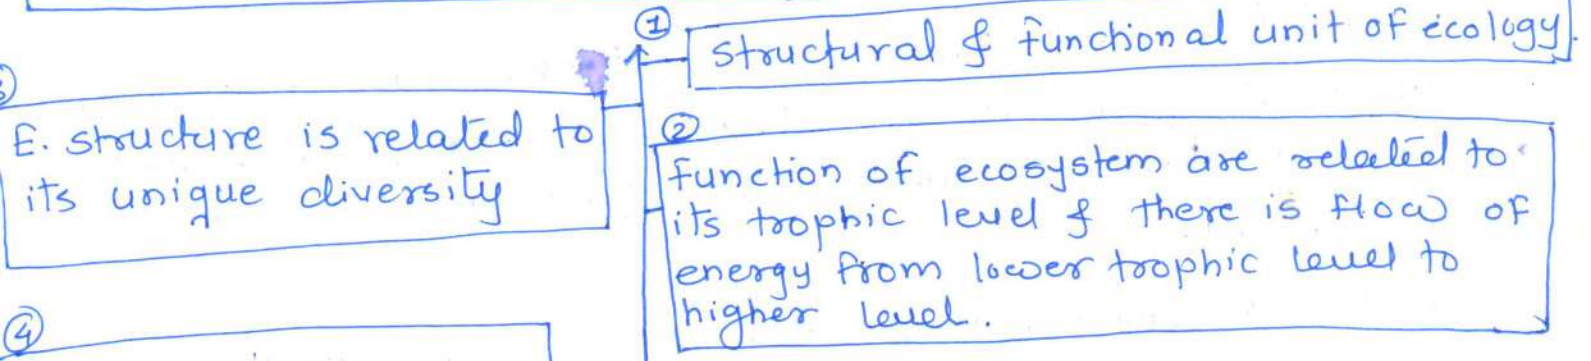 ①
Structural & functional unit of ecology.
E. structure is related to
its unique diversity
②
Function of ecosystem are related to
its trophic level & there is flow of
energy from lower trophic level to
higher level.
④